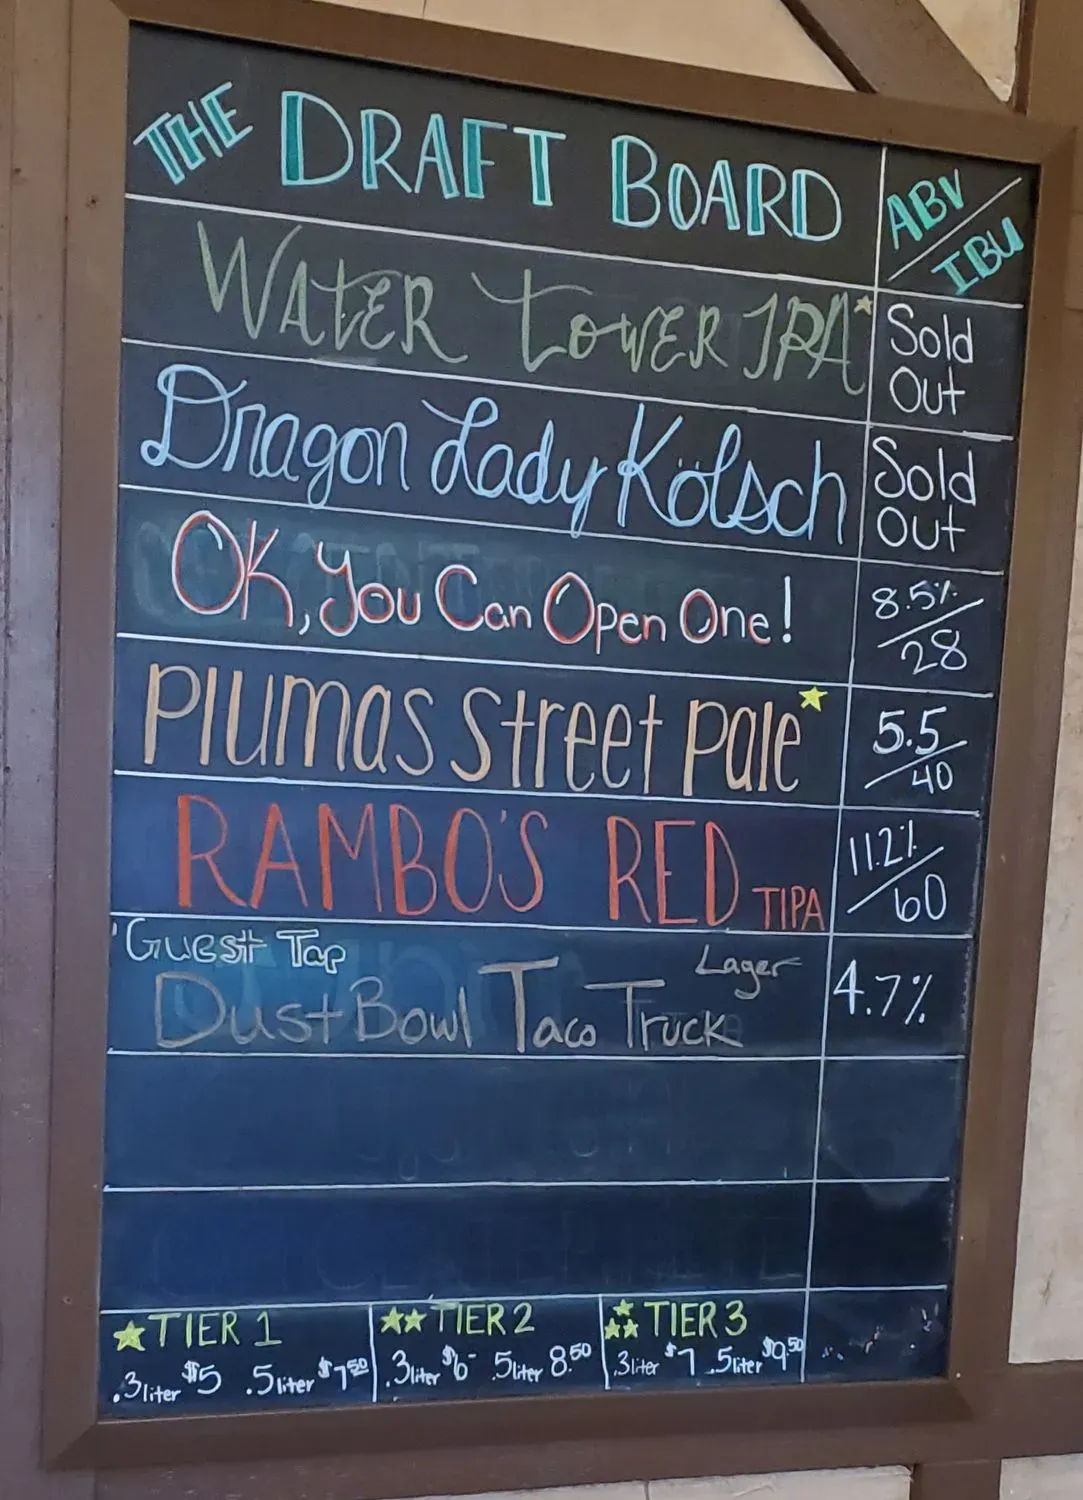 THE DRAFT BOARD
ABV/IBU
WATER TOWER IPA
Sold
Out
Dragon Lady Kölsch
Sold
Out
OK, You Can Open One!
8.5%
28
Plumas Street Pale
5.5
40
RAMBO'S RED TIPA
11.2%
60
Guest Tap
Lager
Dust Bowl Taco Truck
4.7%
TIER 1
.3liter $5 .5liter $7.50
TIER 2
.3liter $6- .5liter 8.50
TIER 3
.3liter $7 .5liter $9.50